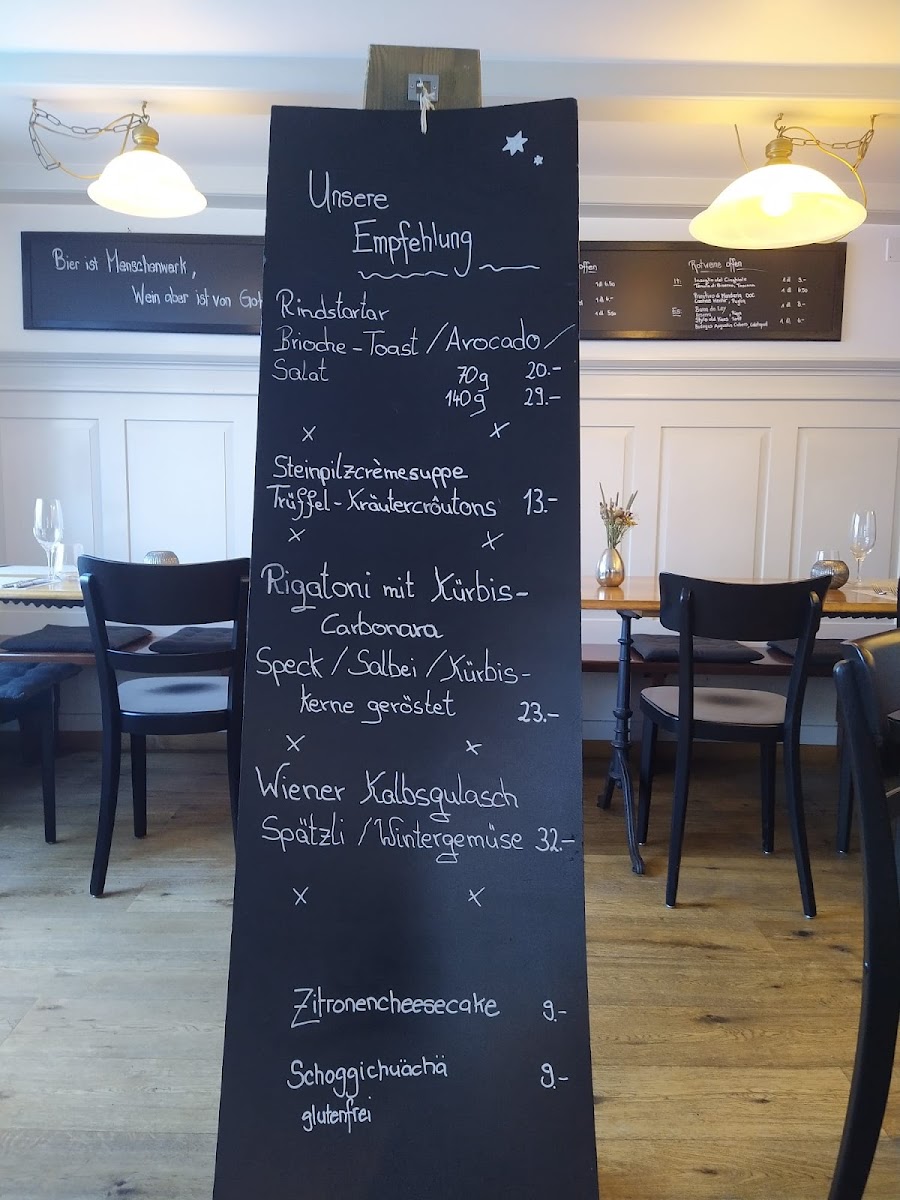 Unsere
Empfehlung
Rindstartar
Brioche-Toast / Avocado /
Salat 70g 20.-
140g 29.-
x x
Steinpilzcrèmesuppe
Trüffel-Kräutercroûtons 13.-
x x
Rigatoni mit Kürbis-
Carbonara
Speck / Salbei / Kürbis-
kerne geröstet 23.-
x x
Wiener Kalbsgulasch
Spätzli / Wintergemüse 32.-
x x
Zitronencheesecake 9.-
Schoggichuächä 9.-
glutenfrei
Bier ist Menschenwerk,
Wein aber ist von Got
ffen
Rotweine offen